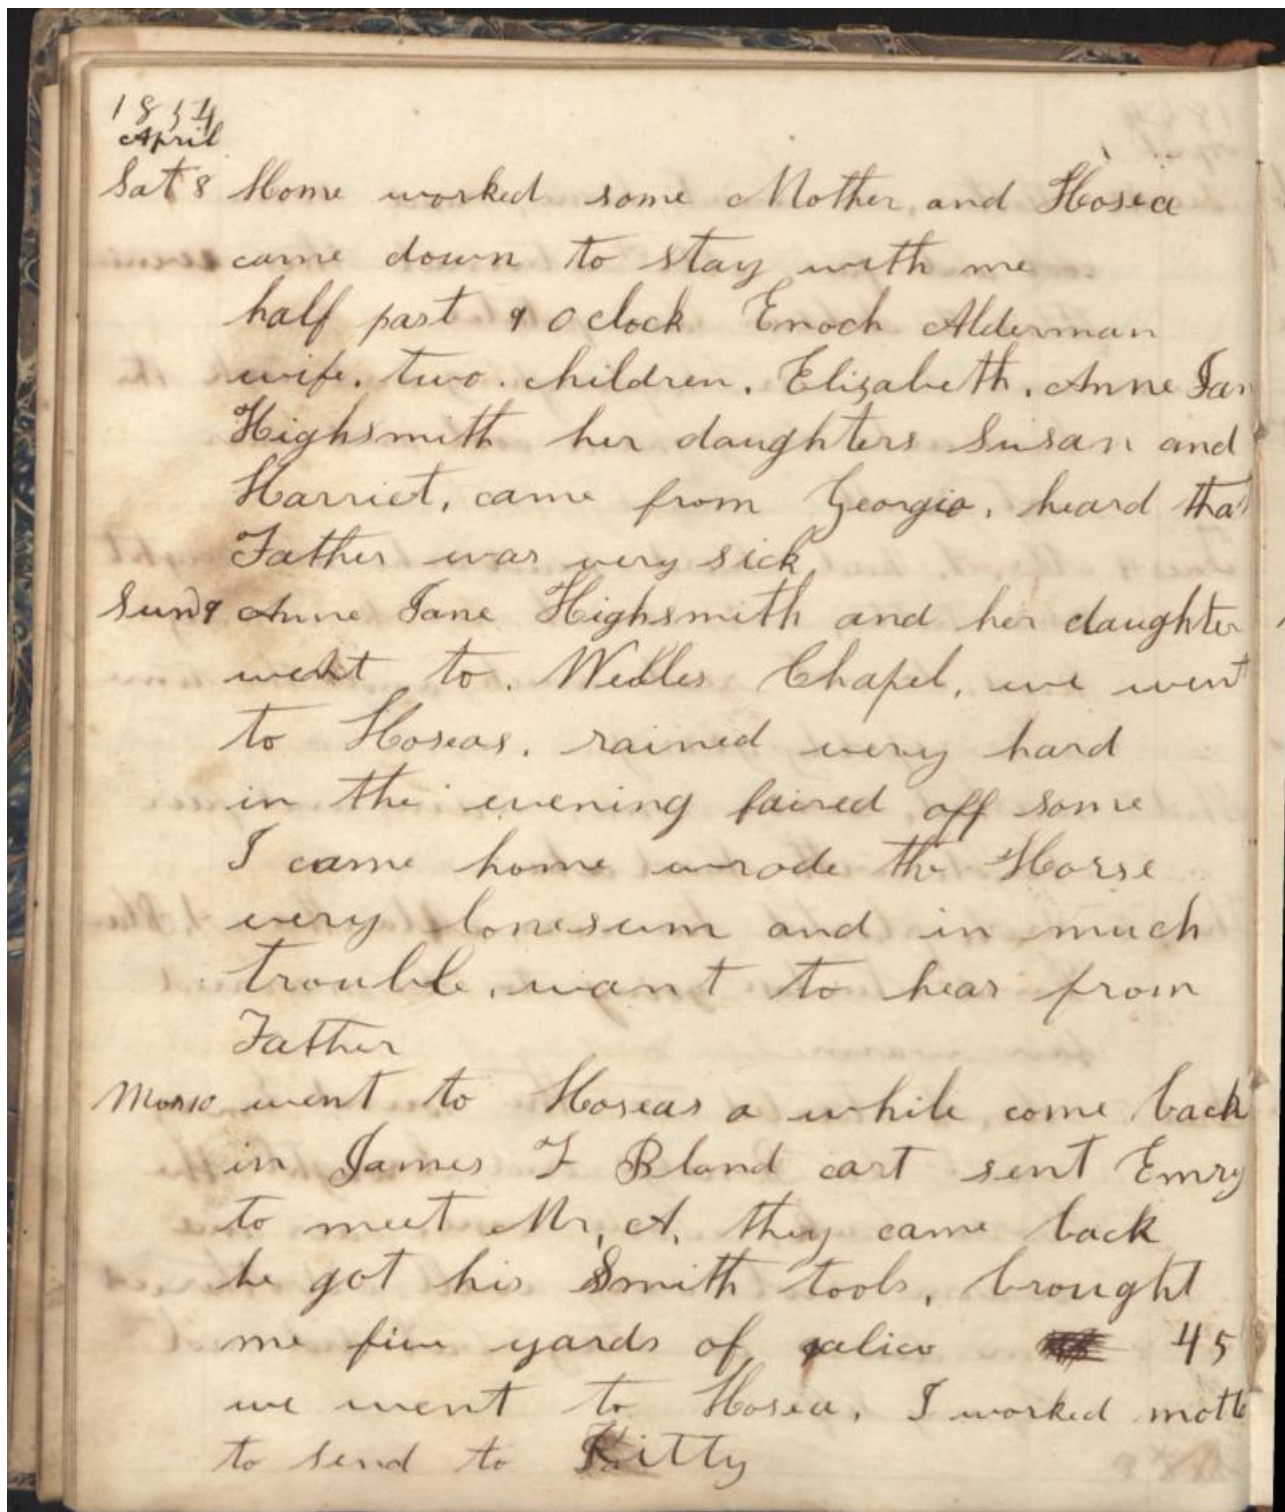 1854
April
Sat 8 Home worked some Mother and Hosea
came down to stay with me
half past 9 O clock Enoch Alderman
wife. two. children. Elizabeth. Anne Jan
Highsmith her daughters Susan and
Harriet, came from Georgia, heard that
Father was very sick
Sund 9 Anne Jane Highsmith and her daughter
went to. Wells Chapel, we went
to Hoseas. rained very hard
in the evening faired off some
I came home wrode the Horse
very lonesum and in much
trouble. want to hear from
Father
Mon 10 went to Hoseas a while come back
in James F Bland cart sent Emry
to meet Mr, A, they came back
he got his Smith tools, brought
me five yards of calico 45
we went to Hosea. I worked
to send to Kitty